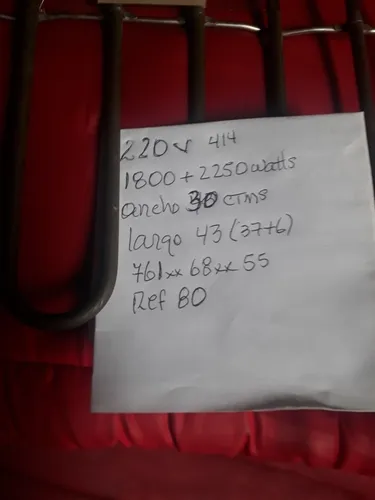 220v 414
1800 + 2250 watts
ancho 30 CTMS
largo 43 (37+6)
761xx 68xx 55
Ref 80